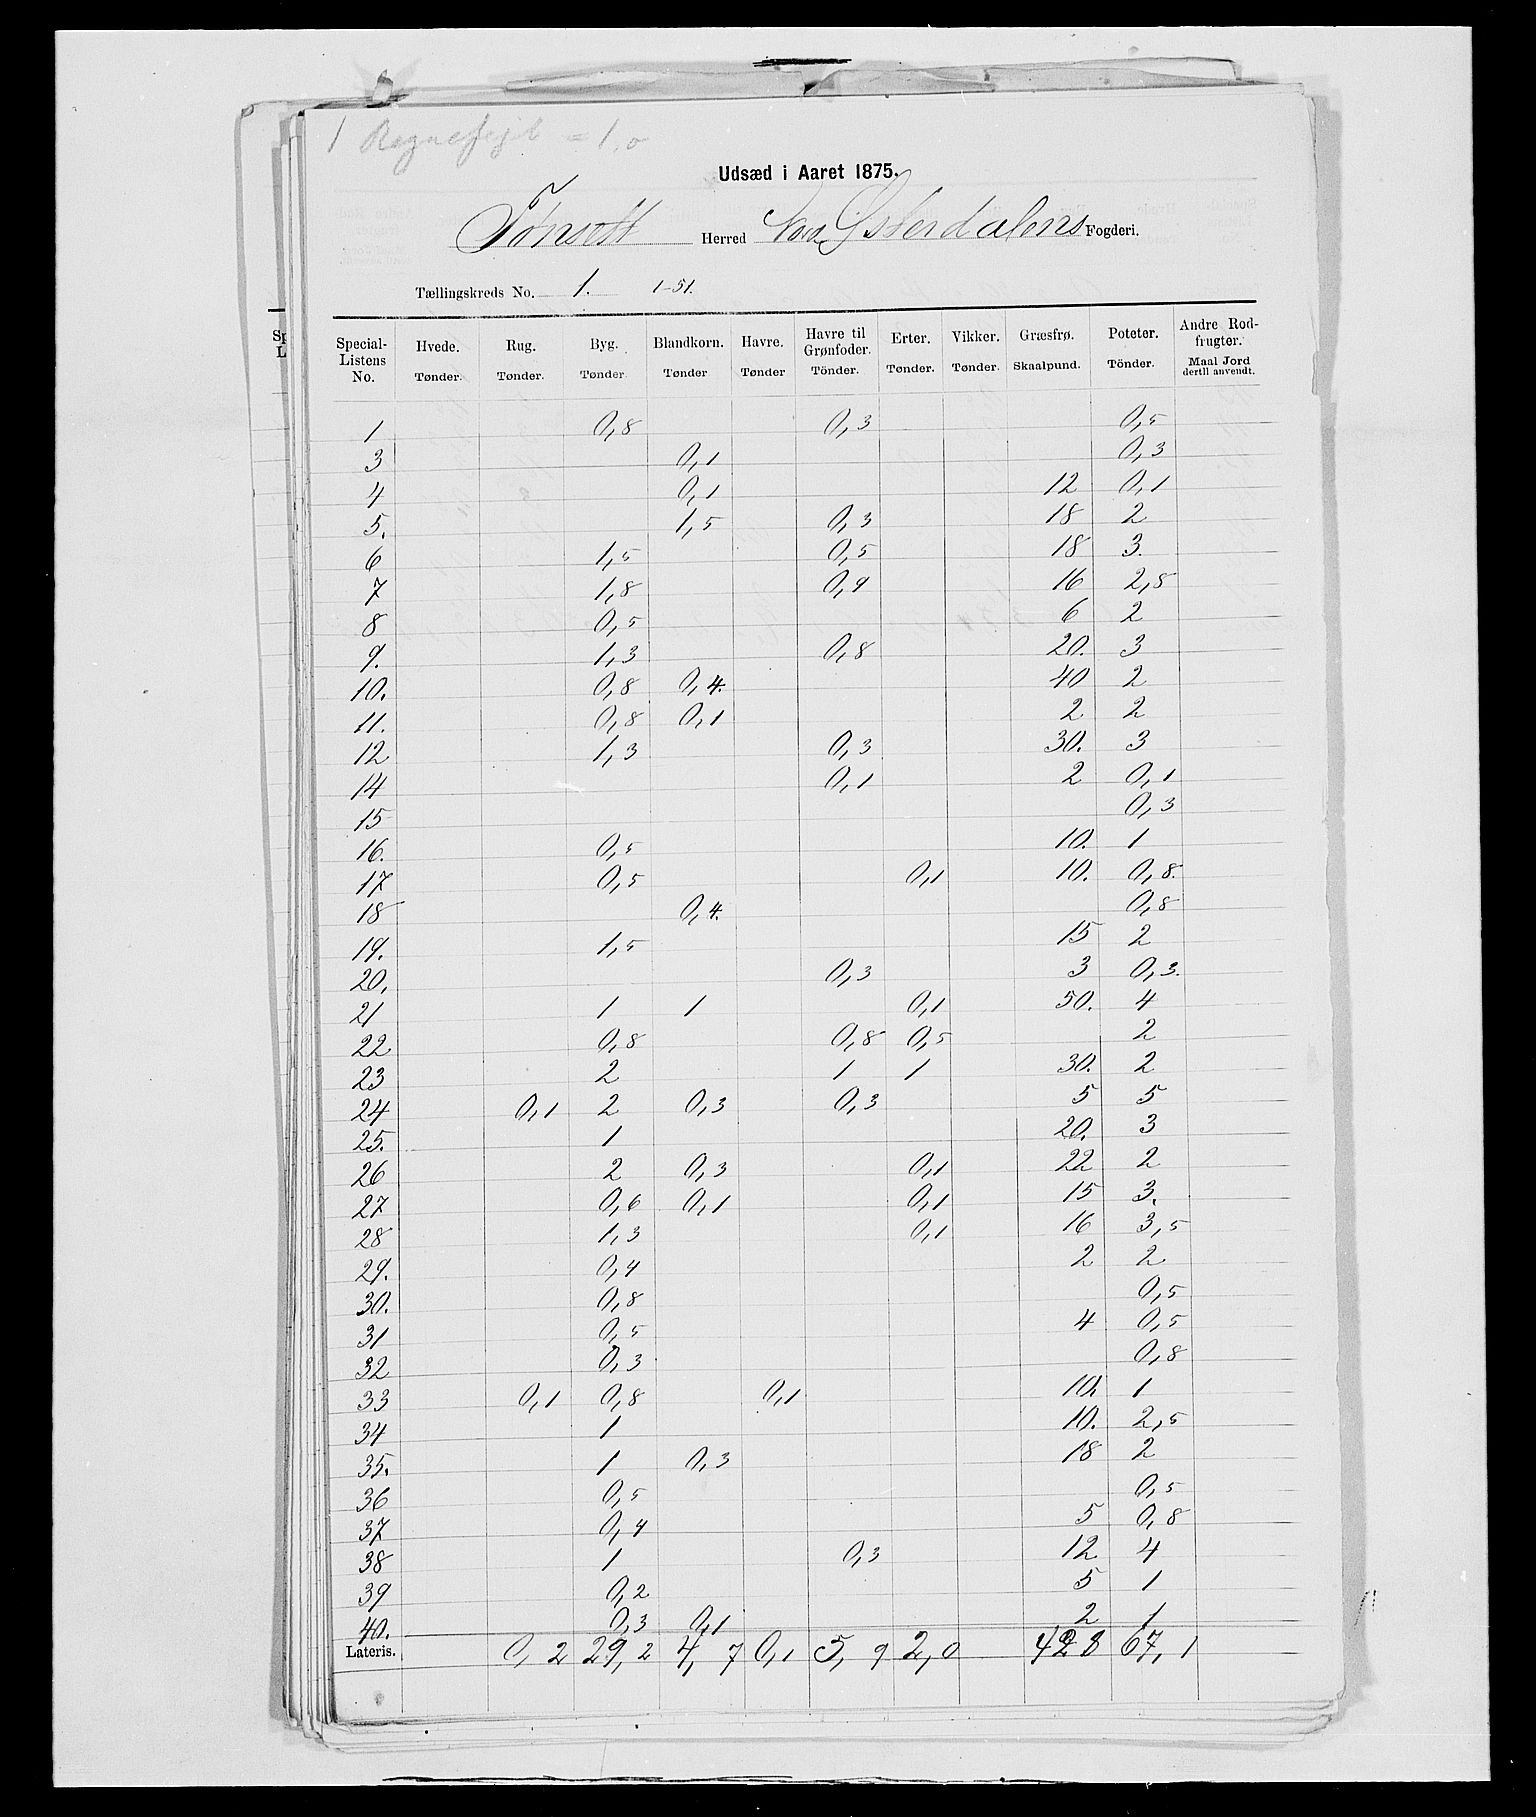 1 Regnefejl = 1,0
Udsæd i Aaret 1875.
Tønsett Herred Nor. Østerdalens Fogderi.
Tællingskreds No. 1. 1-51.
Special-Listens No. | Hvede. Tønder. | Rug. Tønder. | Byg. Tønder | Blandkorn. Tønder | Havre. Tønder | Havre til Grønfoder. Tönder. | Erter. Tønder. | Vikker. Tønder. | Græsfrø. Skaalpund. | Poteter. Tönder. | Andre Rodfrugter. Maal Jord dertil anvendt.
1 | | | 0,8 | | | 0,3 | | | | 0,5 |
3 | | | | 0,1 | | | | | | 0,3 |
4 | | | | 0,1 | | | | | 12 | 0,1 |
5. | | | | 1,5 | | 0,3 | | | 18 | 2 |
6 | | | 1,5 | | | 0,5 | | | 18 | 3. |
7 | | | 1,8 | | | 0,9 | | | 16 | 2,8 |
8 | | | 0,5 | | | | | | 6 | 2 |
9. | | | 1,3 | | | 0,8 | | | 20. | 3 |
10. | | | 0,8 | 0,4. | | | | | 40 | 2 |
11. | | | 0,8 | 0,1 | | | | | 2 | 2 |
12 | | | 1,3 | | | 0,3 | | | 30. | 3 |
14 | | | | | | 0,1 | | | 2 | 0,1 |
15 | | | | | | | | | | 0,3 |
16. | | | 0,5 | | | | | | 10. | 1 |
17 | | | 0,5 | | | | 0,1 | | 10. | 0,8. |
18 | | | | 0,4. | | | | | | 0,8 |
19. | | | 1,5 | | | | | | 15 | 2 |
20, | | | | | | 0,3 | | | 3 | 0,3. |
21 | | | 1 | 1 | | | 0,1 | | 50. | 4 |
22 | | | 0,8 | | | 0,8 | 0,5 | | | 2 |
23 | | | 2 | | | 1 | 1 | | 30. | 2 |
24 | | 0,1 | 2 | 0,3 | | 0,3 | | | 5 | 5 |
25. | | | 1 | | | | | | 20. | 3 |
26 | | | 2 | 0,3 | | | 0,1 | | 22 | 2 |
27 | | | 0,6 | 0,1 | | | 0,1 | | 15 | 3. |
28 | | | 1,3 | | | | 0,1 | | 16 | 3,5 |
29. | | | 0,4 | | | | | | 2 | 2 |
30. | | | 0,8 | | | | | | | 0,5 |
31 | | | 0,5 | | | | | | 4 | 0,5 |
32 | | | 0,3 | | | | | | | 0,8 |
33 | | 0,1 | 0,8 | | 0,1 | | | | 10, | 1 |
34 | | | 1 | | | | | | 10. | 2,5 |
35. | | | 1 | 0,3 | | | | | 18 | 2 |
36 | | | 0,5 | | | | | | | 0,5 |
37 | | | 0,4 | | | | | | 5 | 0,8 |
38 | | | 1 | | | 0,3 | | | 12 | 4 |
39 | | | 0,2 | | | | | | 5 | 1 |
40. | | | 0,3 | 0,1 | | | | | 2 | 1 |
Lateris. | | 0,2 | 29,2 | 4,7 | 0,1 | 5,9 | 2,0 | | 428 | 67,1 |